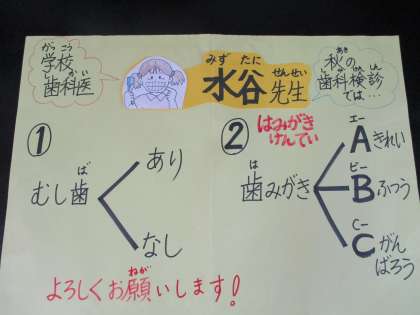 がっこう
学校
しかい
歯科医
みずたに せんせい
水谷先生
あき
秋の
しかけんしん
歯科検診
では…
①
ば
むし歯
あり
なし
②
はみがき
けんてい
は
歯みがき
エー
A きれい
ビー
B ふつう
シー
C がんばろう
ねが
よろしくお願いします！